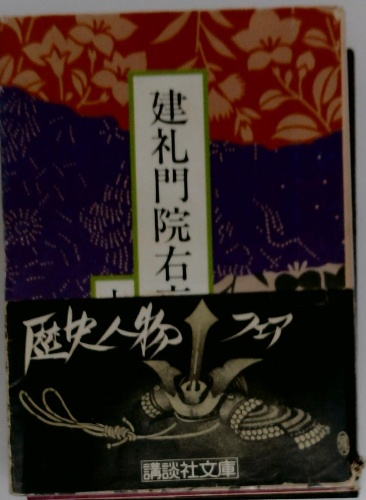 建礼門院右
歴史人物フェア
講談社文庫